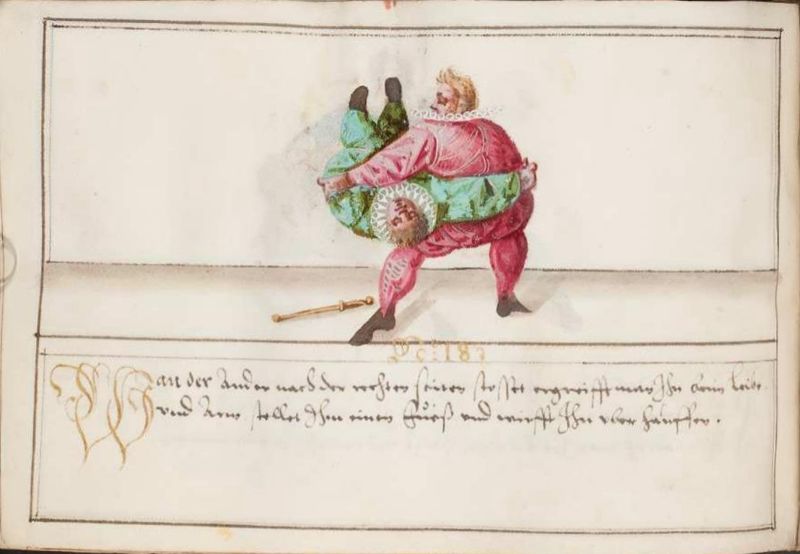 No: 183
Wan der Ander nach der rechten seiten stosset ergreifft man Ihn beim leibe
vnd Arm stellet Ihm einen Fueß vnd wirfft Ihn vber hauffen.